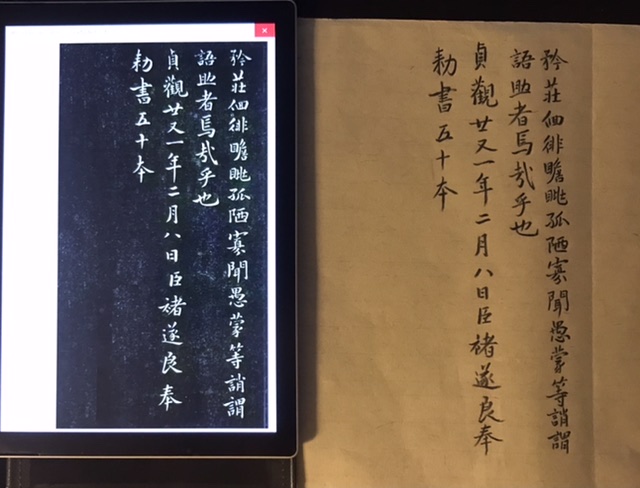 矜莊徊徘瞻眺孤陋寡聞愚蒙等誚謂
語助者焉哉乎也
貞觀廿又一年二月八日臣褚遂良奉
勑書五十本
矜莊徊徘瞻眺孤陋寡聞愚蒙等誚謂
語助者焉哉乎也
貞觀廿又一年二月八日臣褚遂良奉
勑書五十本